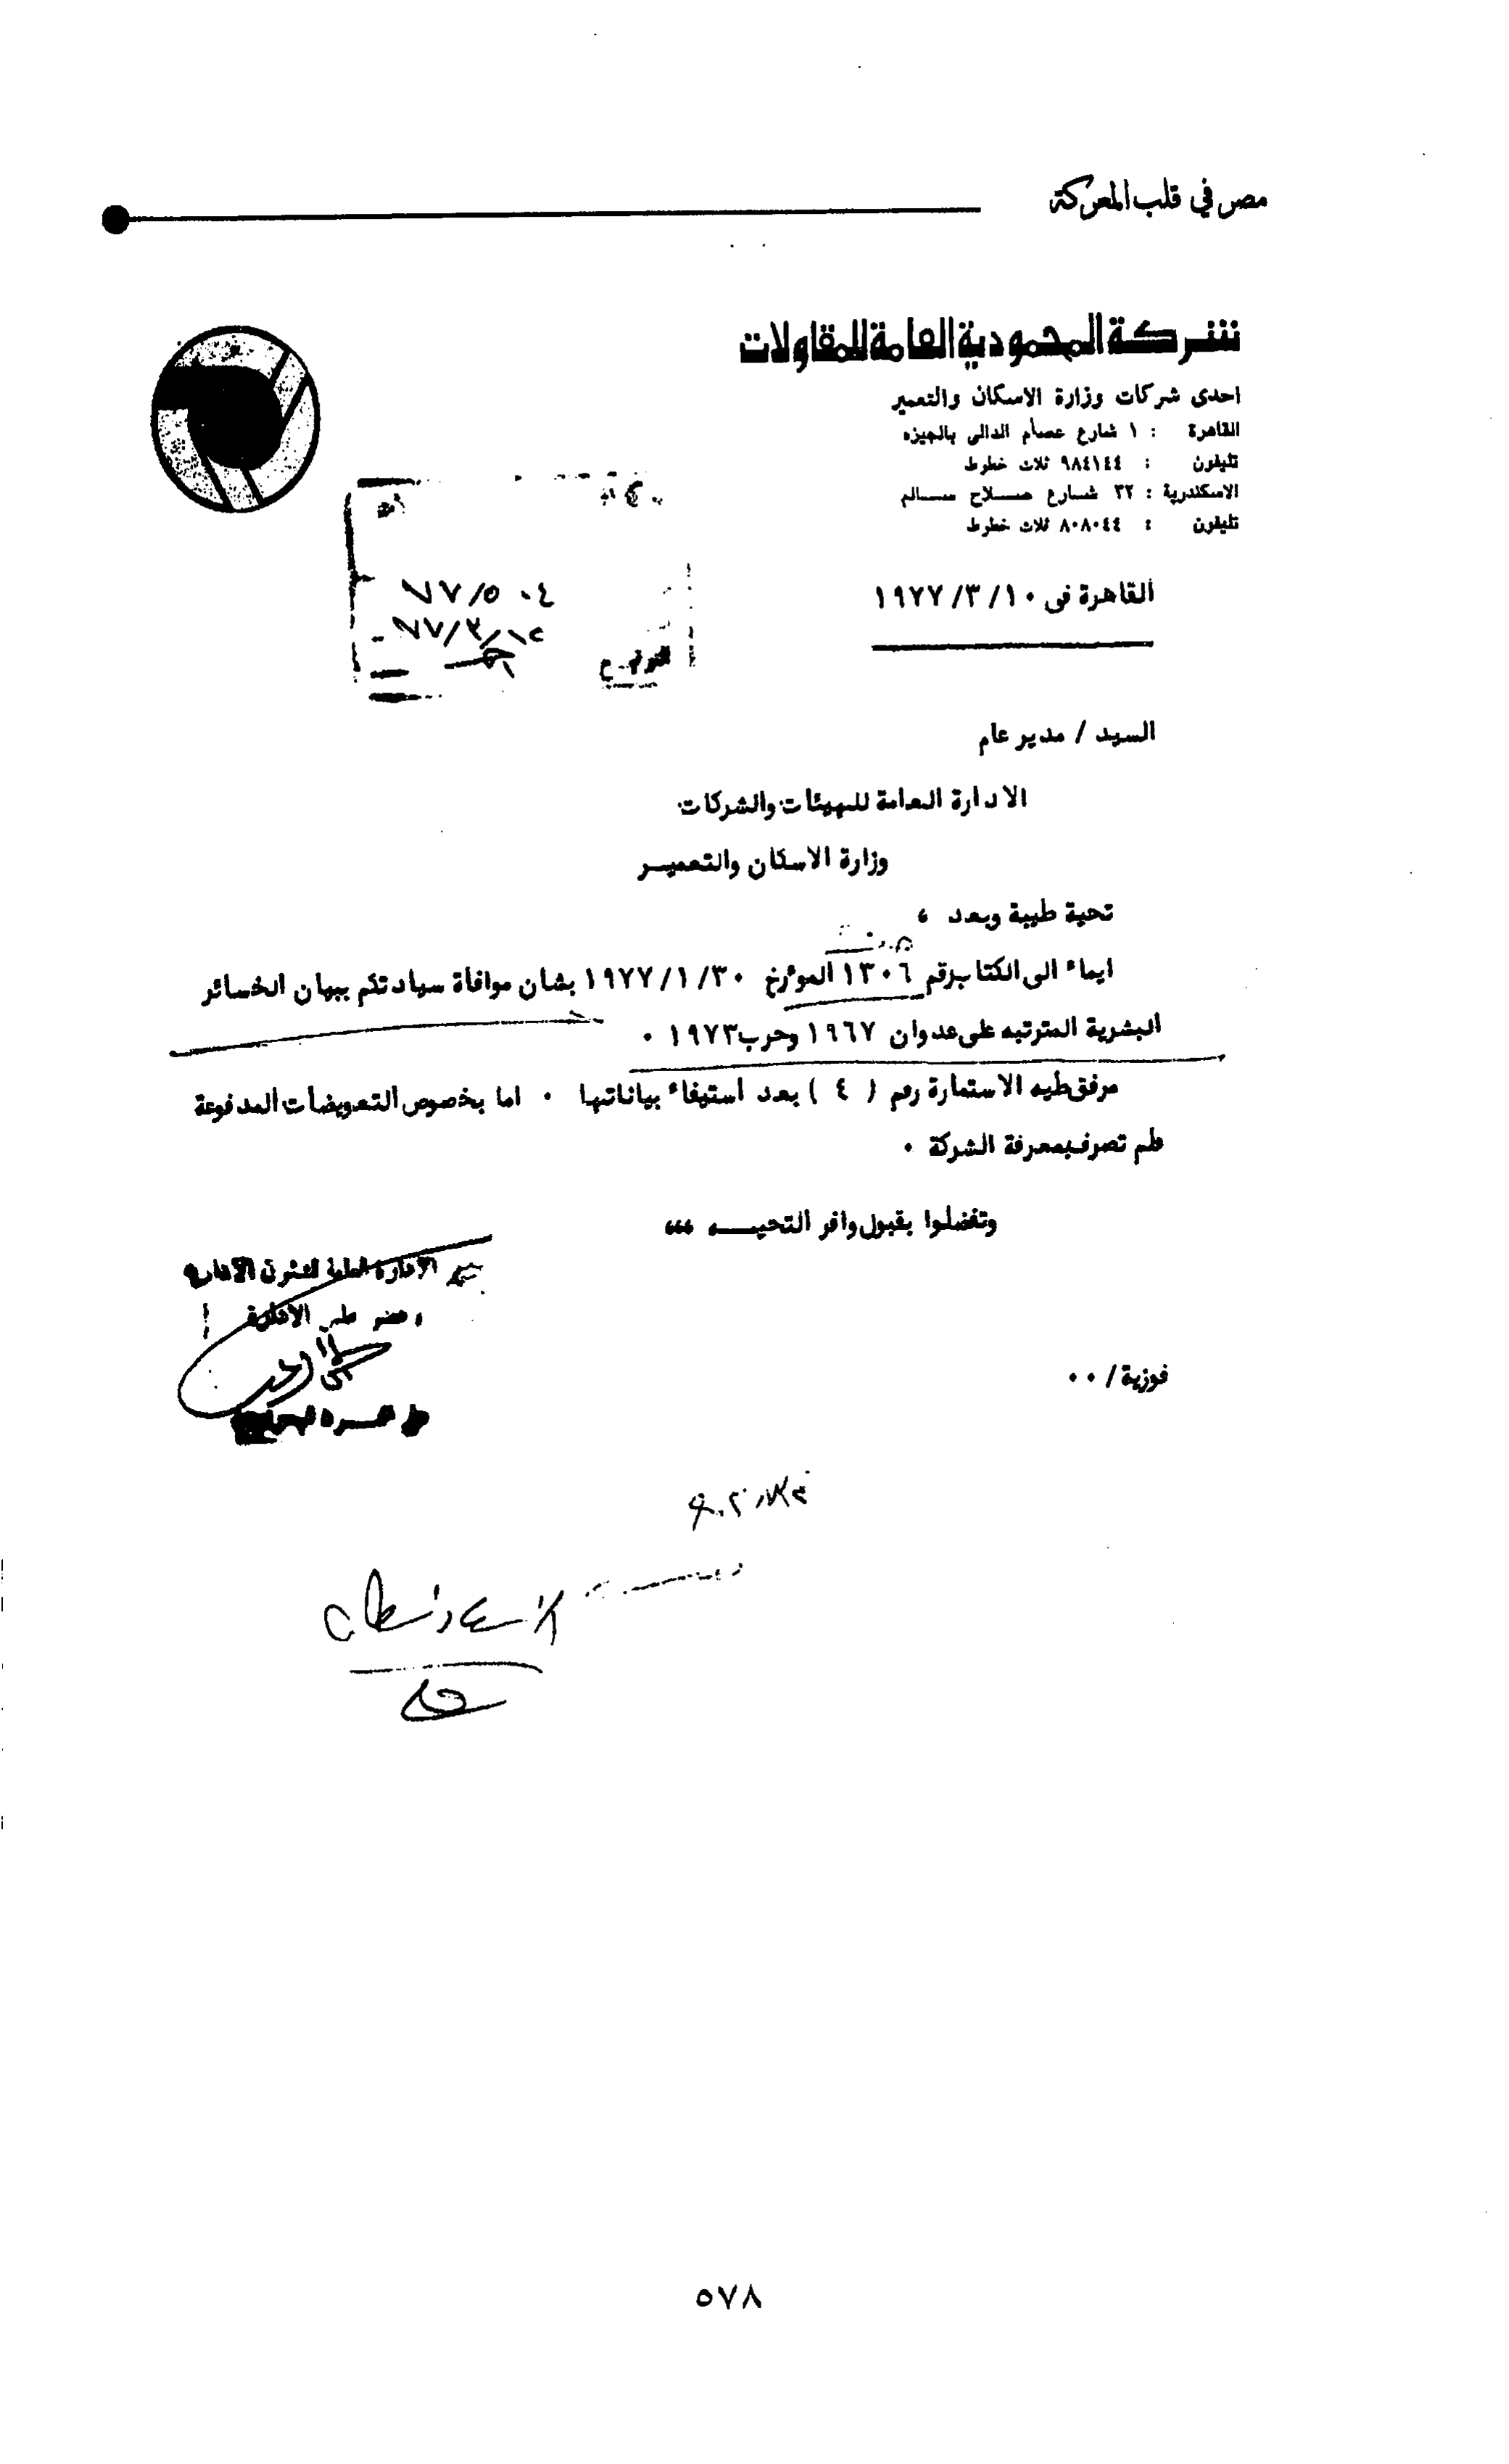 مصر في قلب المعركة
شركة المحمودية العامة للمقاولات
احدى شركات وزارة الاسكان والتعمير
القاهرة : ١ شارع عصام الدالى بالجيزه
تليفون : ٩٨٤١٤٤ ثلاث خطوط
الاسكندرية : ٣٢ شارع صلاح سالم
تليفون : ٨٠٨٠٤٤ ثلاث خطوط
القاهرة فى ١٠ /٣ /١٩٧٧
السيد / مدير عام
الادارة العامة للهيئات والشركات
وزارة الاسكان والتعميـر
تحية طيبة وبعد ،
ايماء الى الكتاب رقم ١٣٠٦ المؤرخ ٣٠ /١ /١٩٧٧ بشان موافاة سيادتكم ببيان الخسائر
البشرية المترتبه على عدوان ١٩٦٧ وحرب ١٩٧٣ .
مرفق طيه الاستمارة رقم ( ٤ ) بعد استيفاء بياناتها . اما بخصوص التعويضات المدفوعة
فلم تصرف بمعرفة الشركة .
وتفضلوا بقبول وافر التحيـــه ،،،
فوزية / ..
٥٧٨